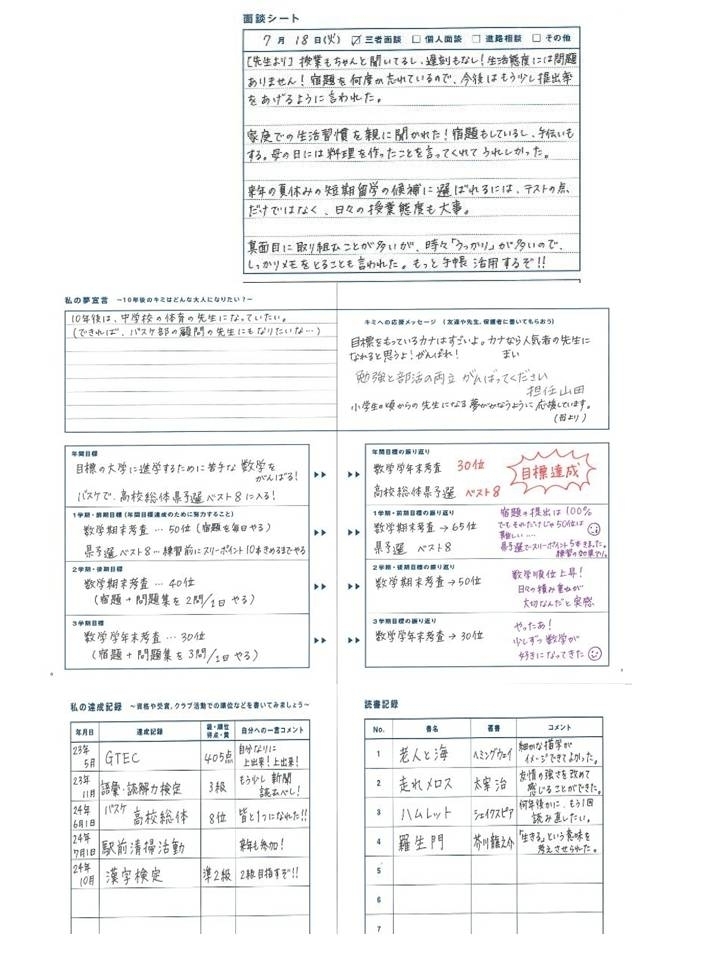 面談シート
7月18日(火) ☑三者面談 □個人面談 □進路相談 □その他
[先生より] 授業もちゃんと聞いてるし、遅刻もなし!生活態度には問題
ありません!宿題を何度か忘れているので、今後はもう少し提出率
をあげるように言われた。
家庭での生活習慣を親に聞かれた!宿題もしているし、手伝いも
する。母の日には料理を作ったことを言ってくれてうれしかった。
来年の夏休みの短期留学の候補に選ばれるには、テストの点、
だけではなく、日々の授業態度も大事。
真面目に取り組むことが多いが、時々「うっかり」が多いので、
しっかりメモをとることも言われた。もっと手帳活用するぞ!!
私の夢宣言 ~10年後のキミはどんな大人になりたい?~
10年後は、中学校の体育の先生になっていたい。
(できれば、バスケ部の顧問の先生にもなりたいな…)
キミへの応援メッセージ (友達や先生、保護者に書いてもらおう)
目標をもっているカナはすごいよ。カナなら人気者の先生に
なれると思うよ!がんばれ! まい
勉強と部活の両立 がんばってください
担任山田
小学生の頃からの先生になる夢がかなうように応援しています。
(母より)
年間目標
目標の大学に進学するために苦手な数学を
がんばる!
バスケで、高校総体県予選ベスト8に入る!
年間目標の振り返り
数学学年末考査 30位
高校総体県予選 ベスト8
目標達成
1学期・前期目標(年間目標達成のために努力すること)
数学期末考査…50位(宿題を毎日やる)
県予選ベスト8…練習前にスリーポイント10本きめるまでやる
1学期・前期目標の振り返り
数学期末考査→65位
県予選 ベスト8
宿題の提出は100%
でもそれだけじゃ50位は
難しい…
県予選でスリーポイント5本きました。
練習の効果でた。
2学期・後期目標
数学期末考査…40位
(宿題+問題集を2問/1日やる)
2学期・後期目標の振り返り
数学期末考査→50位
数学順位上昇!
日々の積み重ねが
大切なんだと実感
3学期目標
数学学年末考査…30位
(宿題+問題集を3問/1日やる)
3学期目標の振り返り
数学学年末考査→30位
やったあ!
少しずつ数学が
好きになってきた
私の達成記録 ~資格や受賞、クラブ活動での順位などを書いてみましょう~
年月日 達成記録 級・順位 得点・賞 自分への一言コメント
23年5月 GTEC 405点 自分なりに上出来!上出来!
23年11月 語彙・読解力検定 3級 もう少し新聞読むべし!
24年6月1日 バスケ 高校総体 8位 皆と1つになれた!!
24年7月1日 駅前清掃活動 来年も参加!
24年10月 漢字検定 準2級 2級目指すぞ!!
読書記録
No. 書名 著者 コメント
1 老人と海 ヘミングウェイ 細かな描写がイメージできてよかった。
2 走れメロス 太宰治 友情の強さを改めて感じることができた。
3 ハムレット シェイクスピア 何年後かに、もう1回読み直したい。
4 羅生門 芥川龍之介 「生きる」という意味を考えさせられた。
5
6
7